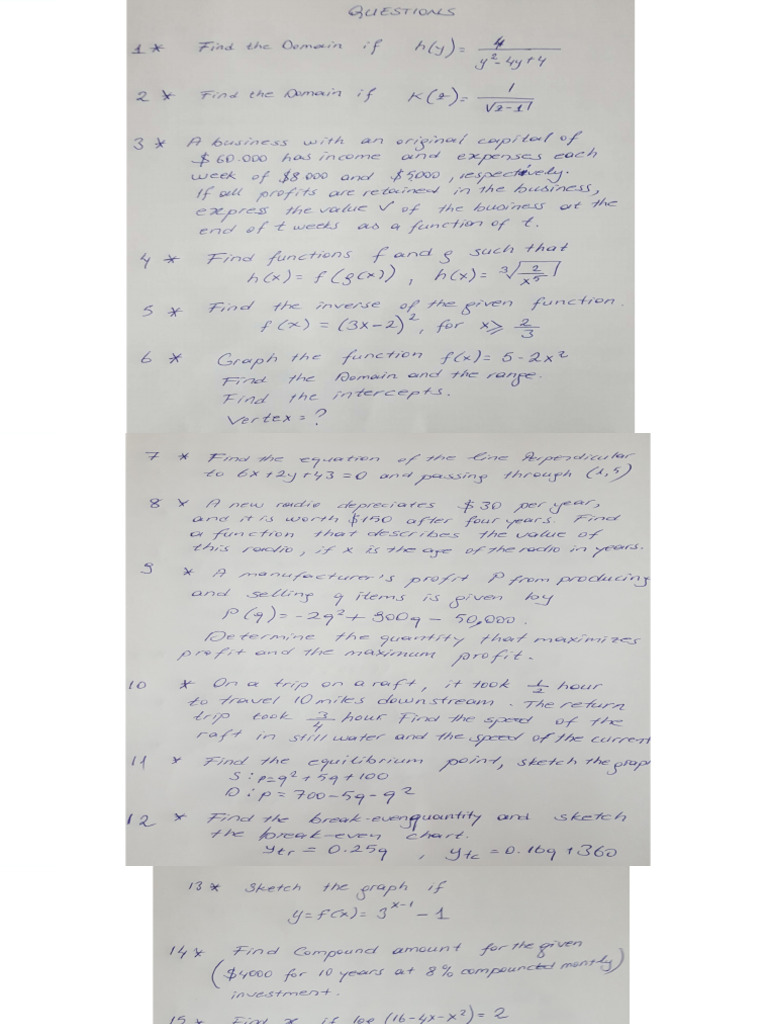 QUESTIONS
1 * Find the Domain if h(y) = 4 / (y² - 4y + 4)
2 * Find the Domain if K(z) = 1 / √(z-1)
3 * A business with an original capital of
$60.000 has income and expenses each
week of $8000 and $5000, respectively.
If all profits are retained in the business,
express the value V of the business at the
end of t weeks as a function of t.
4 * Find functions f and g such that
h(x) = f(g(x)), h(x) = ³√(2/x⁵)
5 * Find the inverse of the given function.
f(x) = (3x-2)², for x ≥ 2/3
6 * Graph the function f(x) = 5 - 2x²
Find the Domain and the range.
Find the intercepts.
Vertex = ?
7 * Find the equation of the line Perpendicular
to 6x + 2y + 43 = 0 and passing through (1,5)
8 * A new radio depreciates $30 per year,
and it is worth $150 after four years. Find
a function that describes the value of
this radio, if x is the age of the radio in years.
9 * A manufacturer's profit P from producing
and selling q items is given by
P(q) = -2q² + 900q - 50,000.
Determine the quantity that maximizes
profit and the maximum profit.
10 * On a trip on a raft, it took 1/2 hour
to travel 10 miles downstream. The return
trip took 3/4 hour Find the speed of the
raft in still water and the speed of the current
11 * Find the equilibrium point, sketch the grap
S: p = q² + 5q + 100
D: p = 700 - 5q - q²
12 * Find the break-even quantity and sketch
the break-even chart.
ytr = 0.25q , ytc = 0.16q + 360
13 * Sketch the graph if
y = f(x) = 3^(x-1) - 1
14 * Find Compound amount for the given
($4000 for 10 years at 8% compounded montly)
investment.
15 * Find x if log (16-4x-x²) = 2